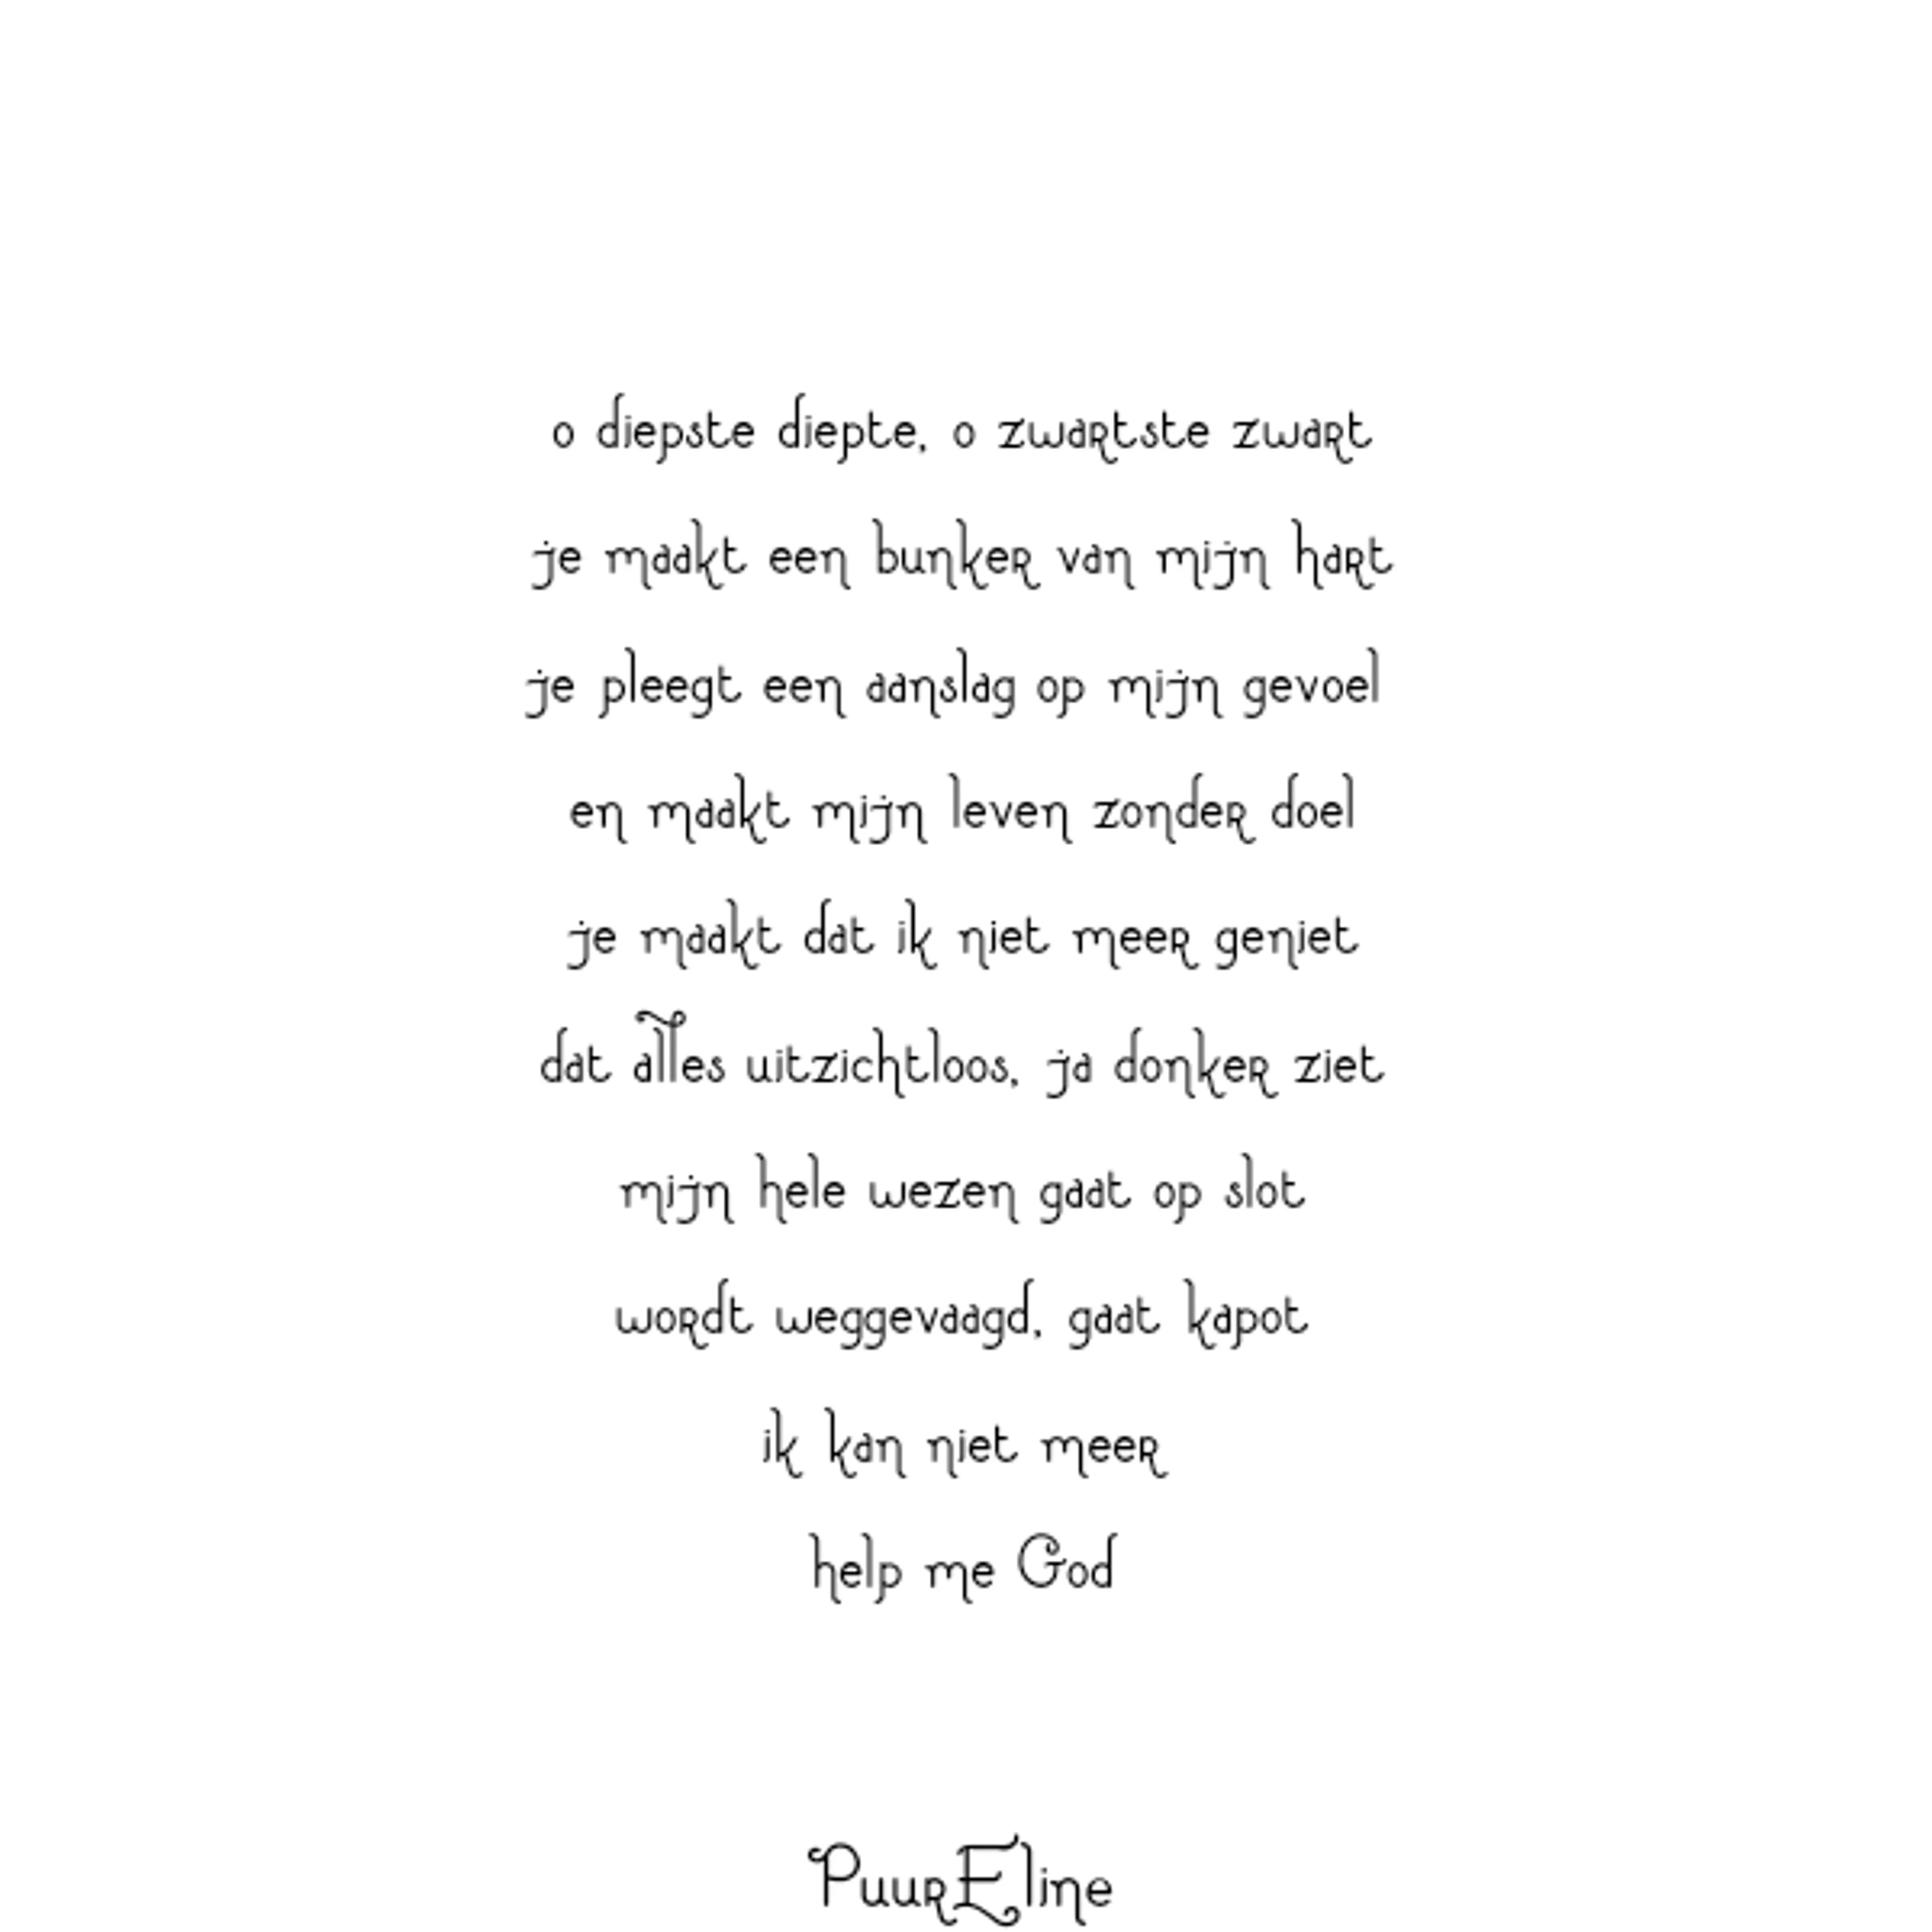 o diepste diepte, o zwartste zwart
je maakt een bunker van mijn hart
je pleegt een aanslag op mijn gevoel
en maakt mijn leven zonder doel
je maakt dat ik niet meer geniet
dat alles uitzichtloos, ja donker ziet
mijn hele wezen gaat op slot
wordt weggevaagd, gaat kapot
ik kan niet meer
help me God
PuurEline